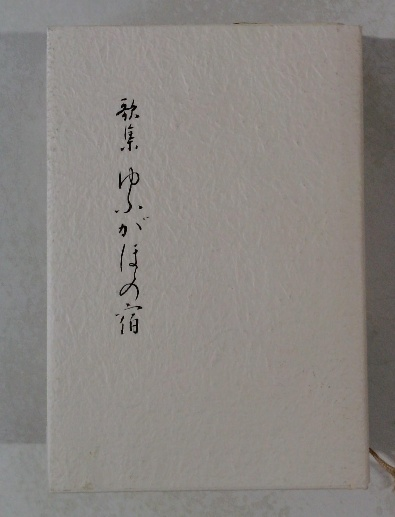 歌集 ゆふがほの宿